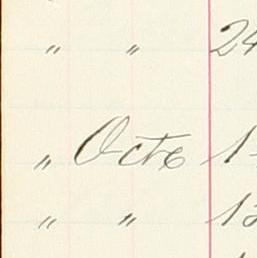 " " 24
" Octo 1
" " 12